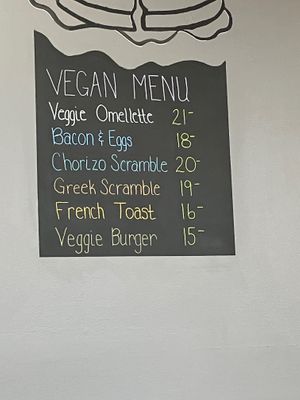 VEGAN MENU
Veggie Omellette 21-
Bacon & Eggs 18-
Chorizo Scramble 20-
Greek Scramble 19-
French Toast 16-
Veggie Burger 15-